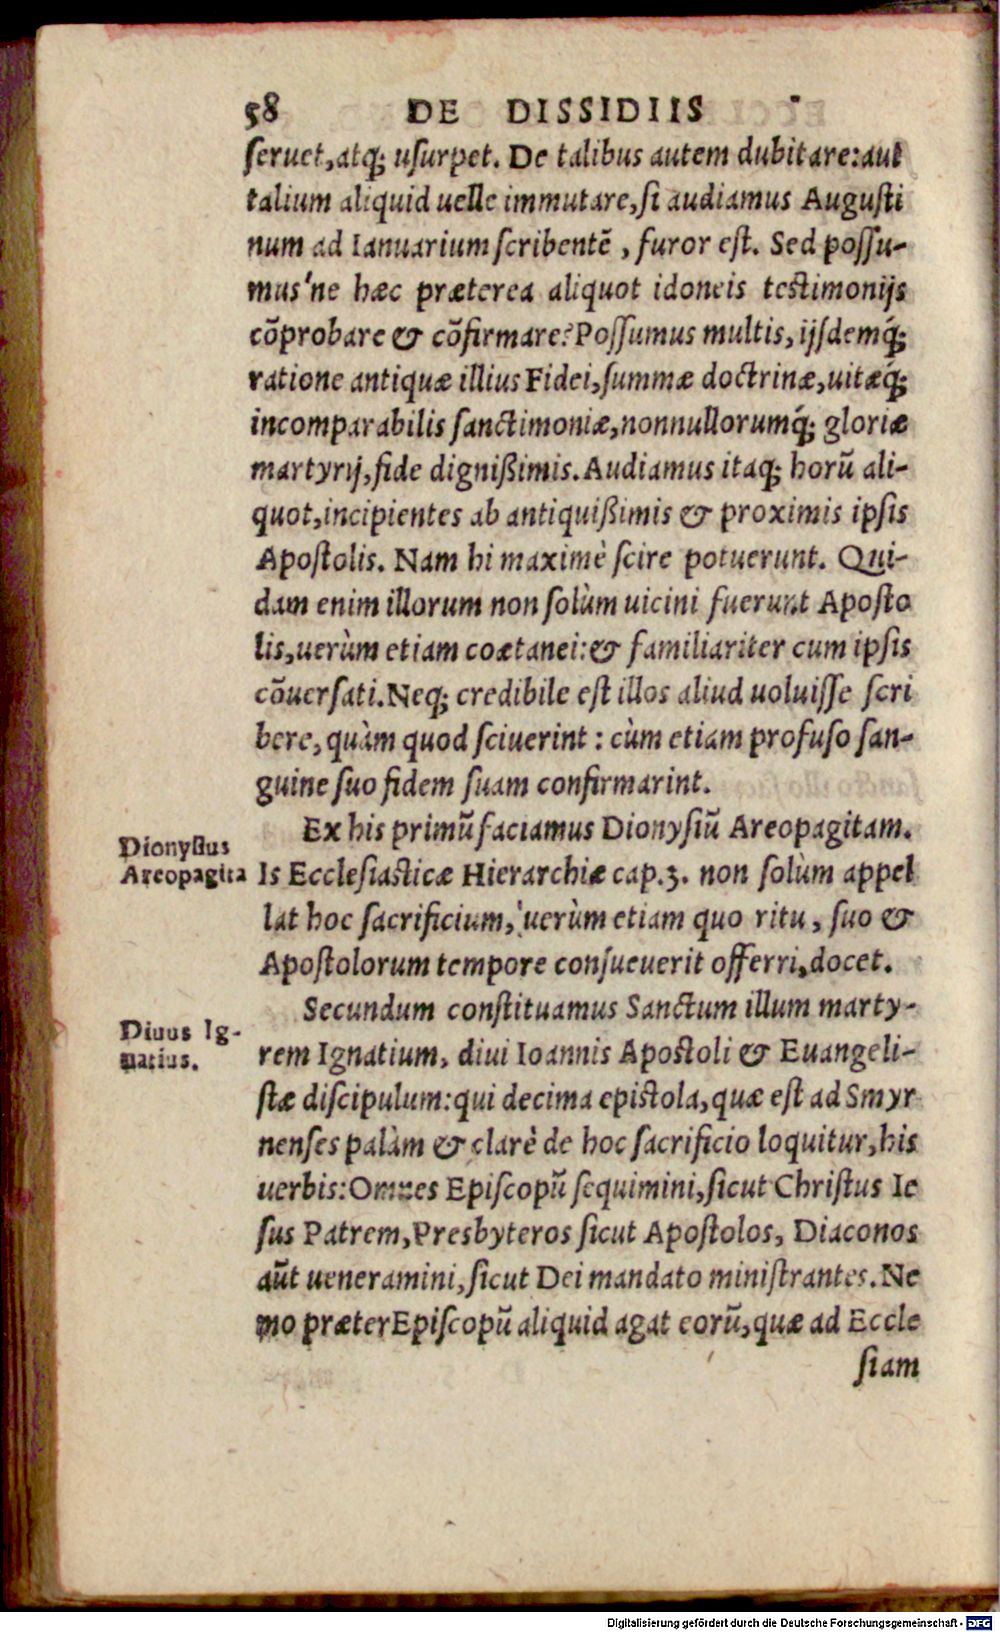 58 DE DISSIDIIS
ſeruet,atq; uſurpet. De talibus autem dubitare:aut
talium aliquid uelle immutare,ſi audiamus Auguſti
num ad Ianuarium ſcribentē , furor eſt. Sed poſſu-
mus'ne hæc præterea aliquot idoneis testimonijs
cōprobare & cōfirmare? Poſſumus multis, ijſdemq́;
ratione antiquæ illius Fidei,ſummæ doctrinæ,uitæq́;
incomparabilis ſanctimoniæ,nonnullorumq́; gloriæ
martyrij,fide digniſsimis. Audiamus itaq; horū ali-
quot,incipientes ab antiquiſsimis & proximis ipſis
Apoſtolis. Nam hi maximè ſcire potuerunt. Qui-
dam enim illorum non ſolùm uicini fuerunt Apoſto
lis,uerùm etiam coætanei:& familiariter cum ipſis
cōuerſati. Neq; credibile eſt illos aliud uoluiſſe ſcri
bere, quàm quod ſciuerint : cùm etiam profuſo ſan-
guine ſuo fidem ſuam confirmarint.
Ex his primū faciamus Dionyſiū Areopagitam.
Dionyſius
Areopagita
Is Eccleſiasticæ Hierarchiæ cap.3. non ſolùm appel
lat hoc ſacrificium, uerùm etiam quo ritu, ſuo &
Apoſtolorum tempore conſueuerit offerri,docet.
Secundum conſtituamus Sanctum illum marty-
Diuus Ig-
natius.
rem Ignatium, diui Ioannis Apoſtoli & Euangeli-
ſtæ diſcipulum:qui decima epistola,quæ eſt ad Smyr
nenſes palàm & clarè de hoc ſacrificio loquitur,his
uerbis:Omnes Epiſcopū ſequimini,ſicut Chriſtus Ie
ſus Patrem,Presbyteros ſicut Apoſtolos, Diaconos
aūt ueneramini,ſicut Dei mandato miniſtrantes. Ne
mo præter Epiſcopū aliquid agat eorū,quæ ad Eccle
ſiam
Digitalisierung gefördert durch die Deutsche Forschungsgemeinschaft - DFG